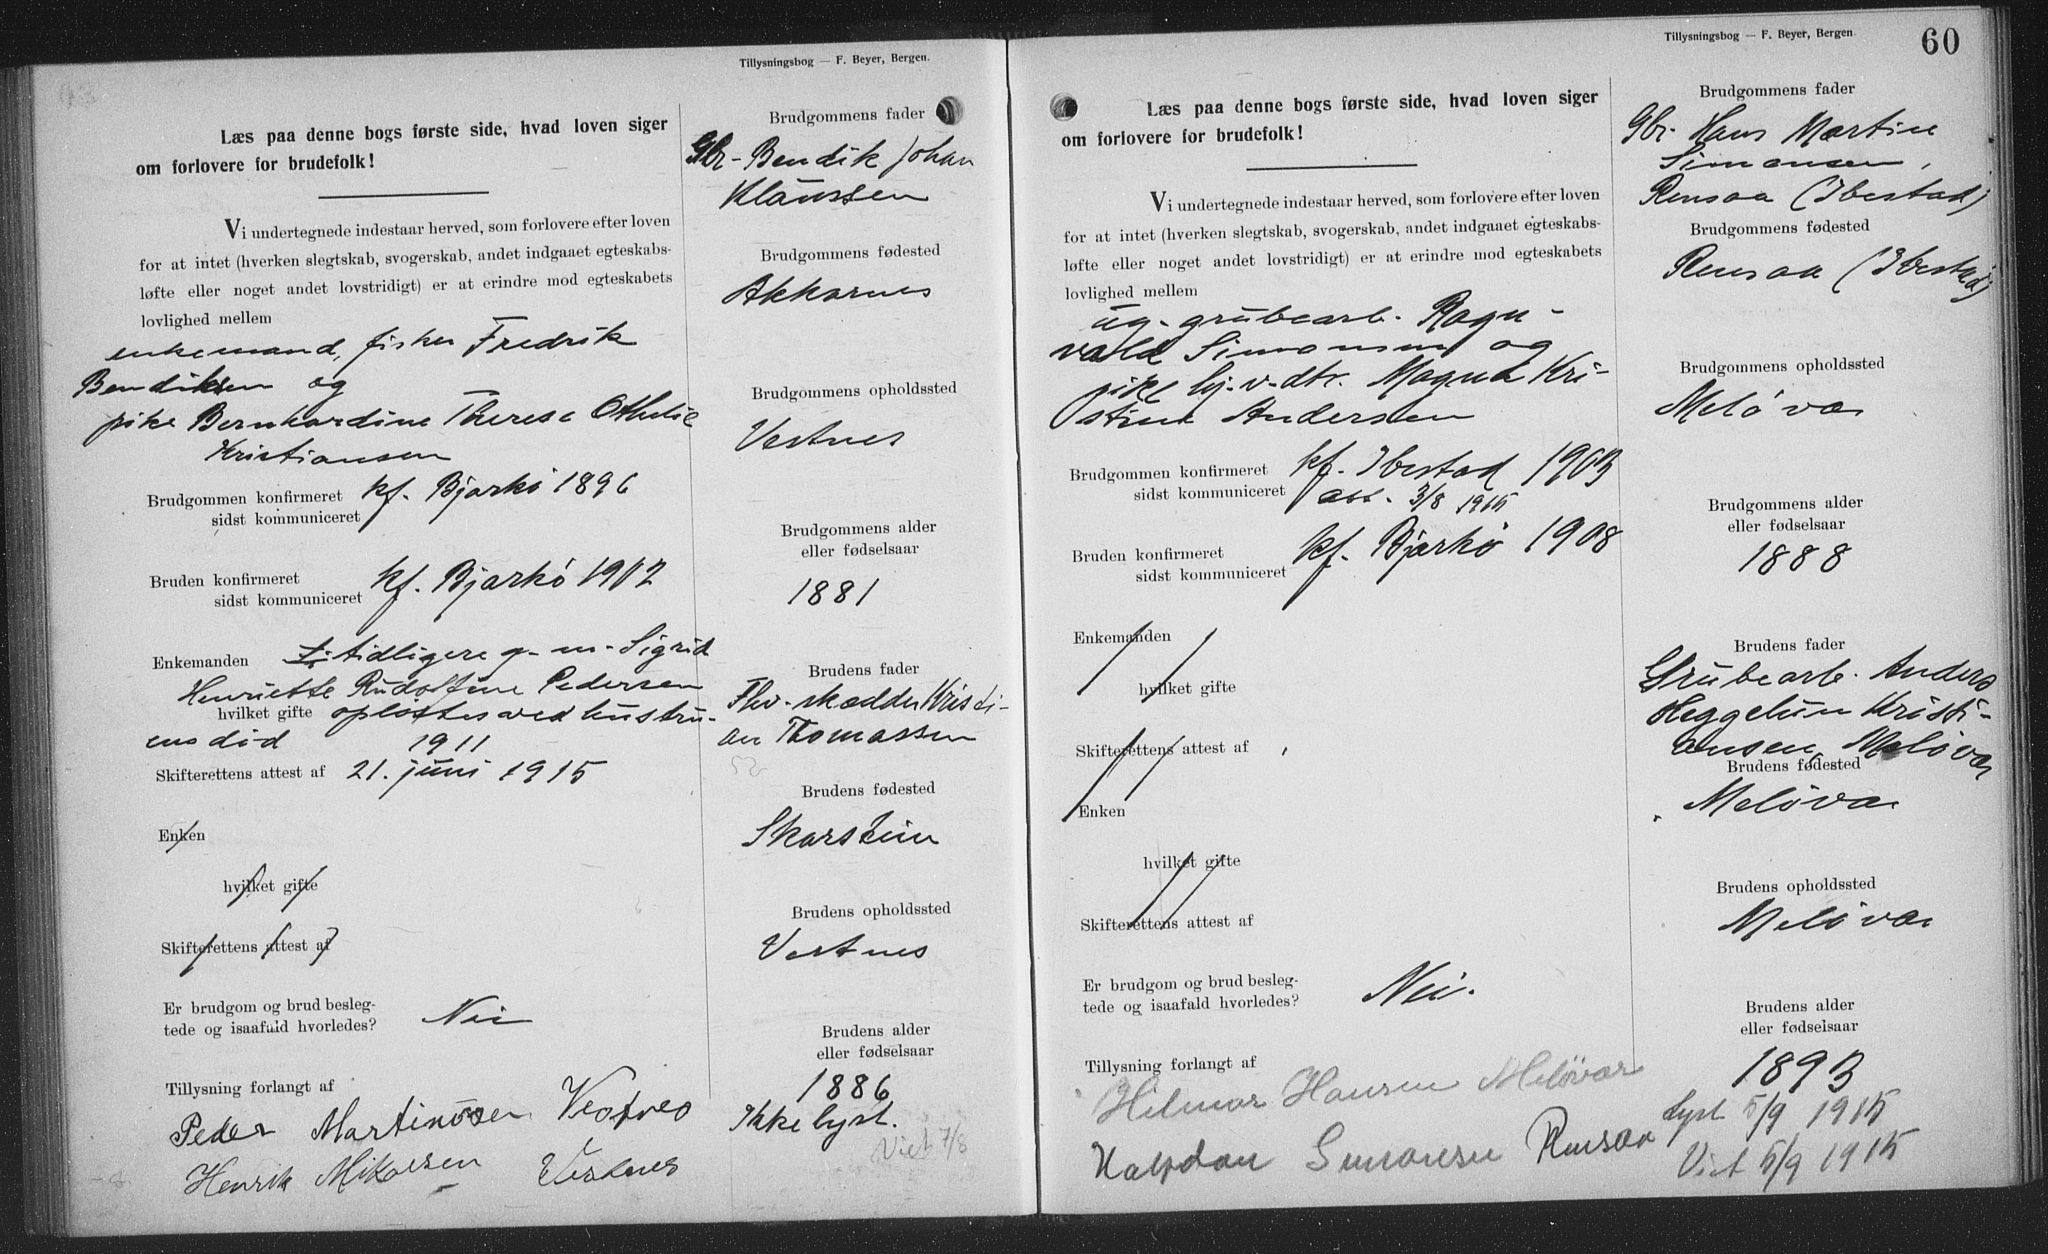 Tillysningsbog — F. Beyer, Bergen.
Læs paa denne bogs første side, hvad loven siger
om forlovere for brudefolk!
Vi undertegnede indestaar herved, som forlovere efter loven
for at intet (hverken slegtskab, svogerskab, andet indgaaet egteskabs-
løfte eller noget andet lovstridigt) er at erindre mod egteskabets
lovlighed mellem
enkemand, fisker Fredrik
Bendiksen og
pike Bernhardine Therese Othelie
Kristiansen
Brudgommen konfirmeret kf. Bjarkö 1896
sidst kommuniceret
Bruden konfirmeret kf. Bjarkö 1902
sidst kommuniceret
Enkemanden tidligere g. m. Sigrid
Henriette Rudolfine Pedersen
hvilket gifte opløstes ved hustru-
ens død 1911
Skifterettens attest af 21. juni 1915
Enken
hvilket gifte
Skifterettens attest af
Er brudgom og brud besleg-
tede og isaafald hvorledes? Nei
Tillysning forlangt af
Peder Martinusen Vestnes
Henrik Mikalsen Vestnes
Brudgommens fader
Gbr. Bendik Johan
Klaussen
Brudgommens fødested
Akkarnes
Brudgommens opholdssted
Vestnes
Brudgommens alder
eller fødselsaar
1881
Brudens fader
Fhv. skrædder Kristi-
an Thomassen
Brudens fødested
Skarstein
Brudens opholdssted
Vestnes
Brudens alder
eller fødselsaar
1886
Ikke lyst.
Viet 7/8
Tillysningsbog — F. Beyer, Bergen
60
Læs paa denne bogs første side, hvad loven siger
om forlovere for brudefolk!
Vi undertegnede indestaar herved, som forlovere efter loven
for at intet (hverken slegtskab, svogerskab, andet indgaaet egteskabs-
løfte eller noget andet lovstridigt) er at erindre mod egteskabets
lovlighed mellem
ug. grubearb. Ragn-
vald Simonsen og
pike hj. v. dtr. Magna Kri-
stine Andersen
Brudgommen konfirmeret kf. Ibestad 1903
sidst kommuniceret att. 3/8 1915
Bruden konfirmeret kf. Bjarkö 1908
sidst kommuniceret
Enkemanden
hvilket gifte
Skifterettens attest af
Enken
hvilket gifte
Skifterettens attest af
Er brudgom og brud besleg-
tede og isaafald hvorledes? Nei.
Tillysning forlangt af
Hilmar Hansen Meløvær
Halfdan Simonsen Rensaa
Brudgommens fader
Gbr. Hans Martin
Simonsen,
Rensaa (Ibestad)
Brudgommens fødested
Rensaa (Ibestad)
Brudgommens opholdssted
Meløvær
Brudgommens alder
eller fødselsaar
1888
Brudens fader
Grubearb. Anders
Heggelun Kristi-
ansen, Meløvær
Brudens fødested
Meløvær
Brudens opholdssted
Meløvær
Brudens alder
eller fødselsaar
1893
Lyst 5/9 1915
Viet 5/9 1915